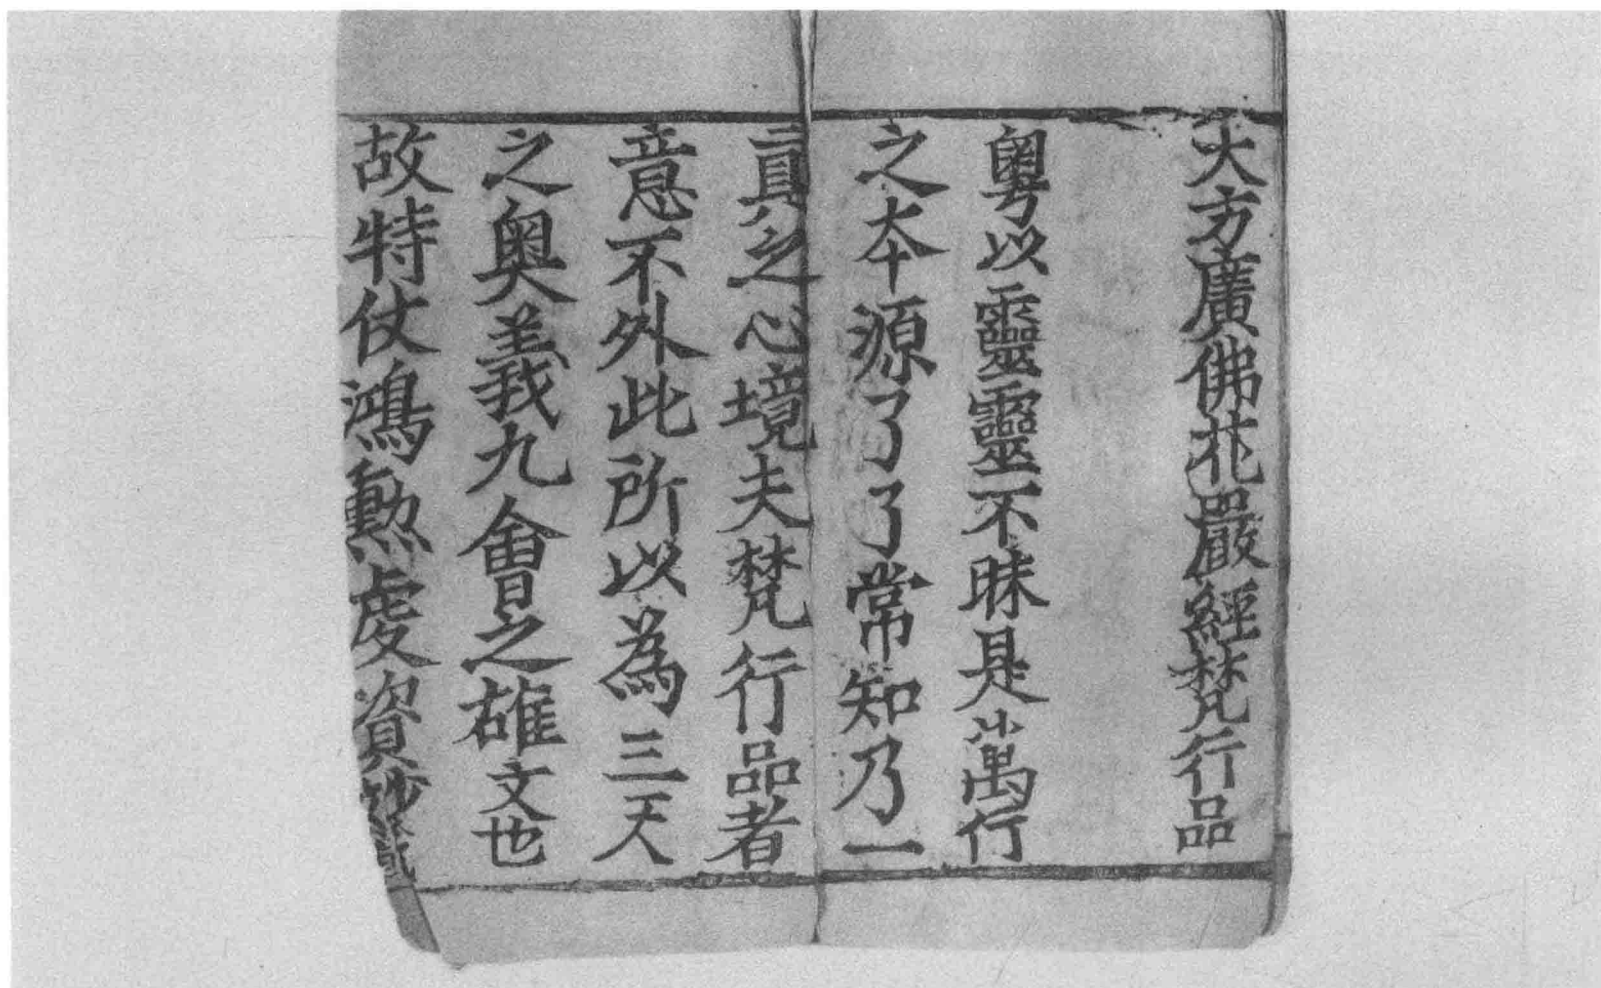 大方廣佛花嚴經梵行品
粵以靈靈不昧是萬行
之夲源了了常知乃一
真之心境夫梵行品者
意不外此所以為三天
之奥義九會之雄文也
故特仗鴻勲虔資妙